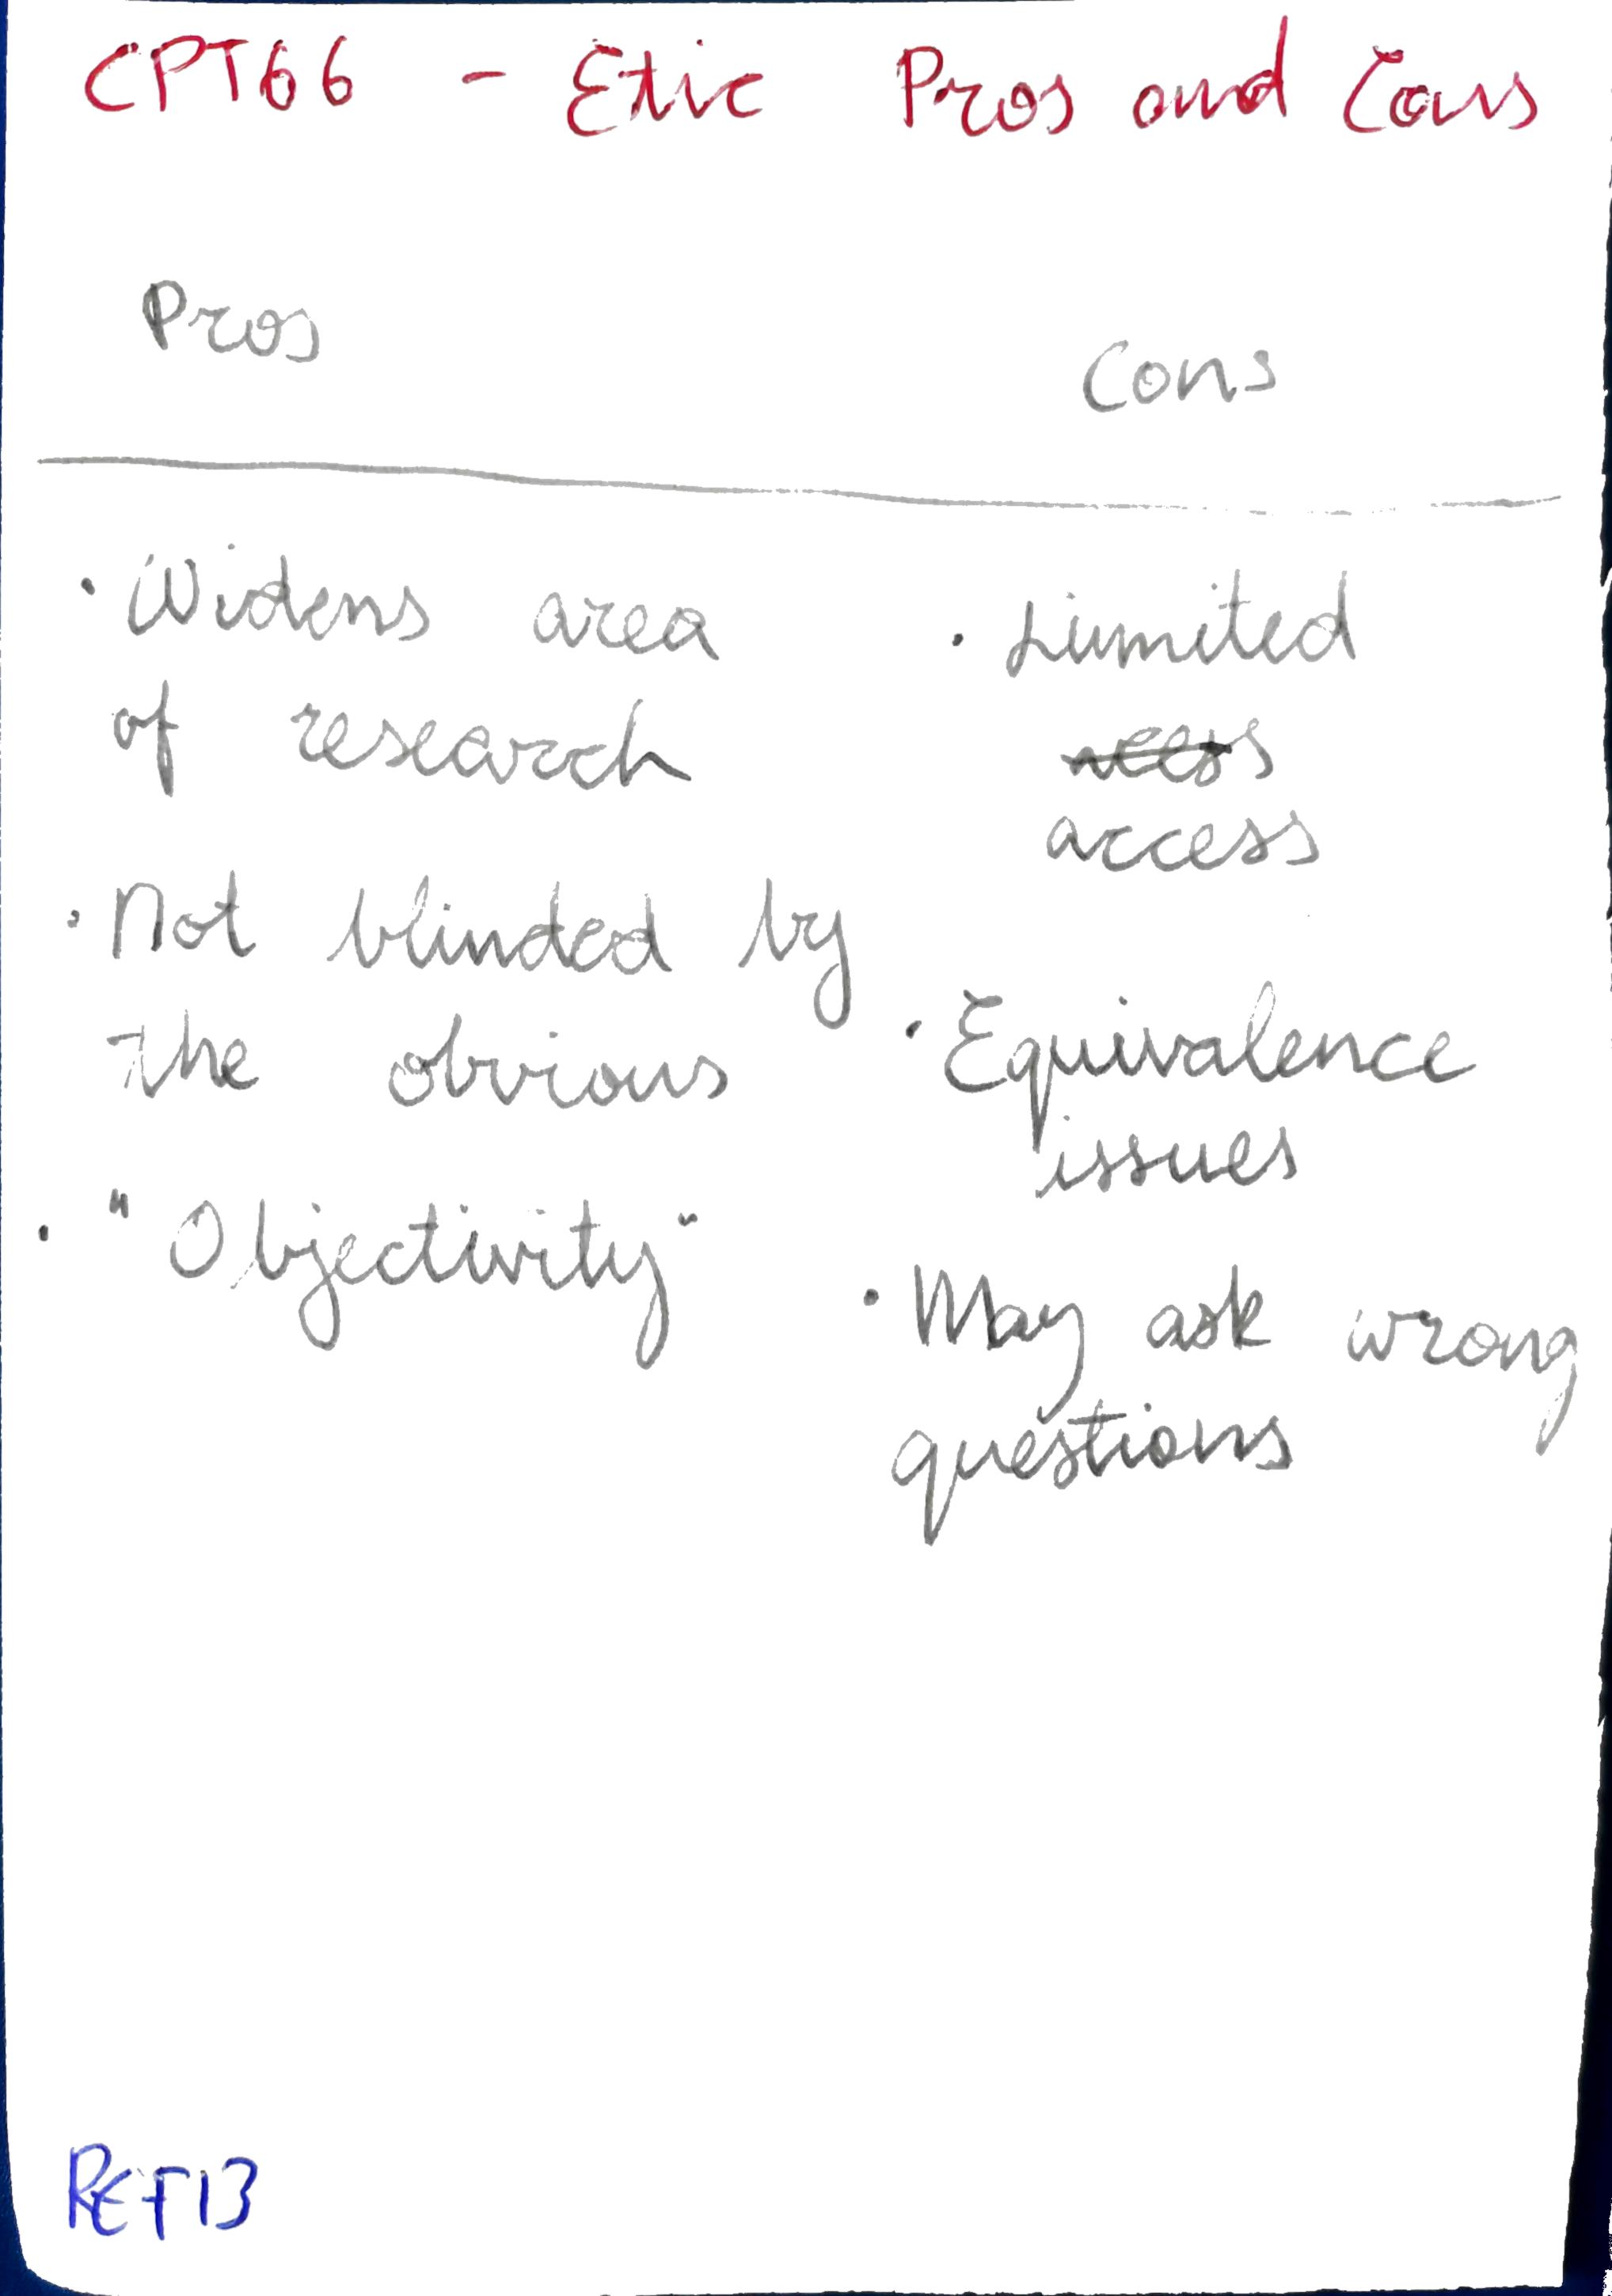 CPT66 - Etic Pros and Cons
Pros
Cons
• Widens area
of research
• Not blinded by
the obvious
• "Objectivity"
• Limited
access
• Equivalence
issues
• May ask wrong
questions
REF13